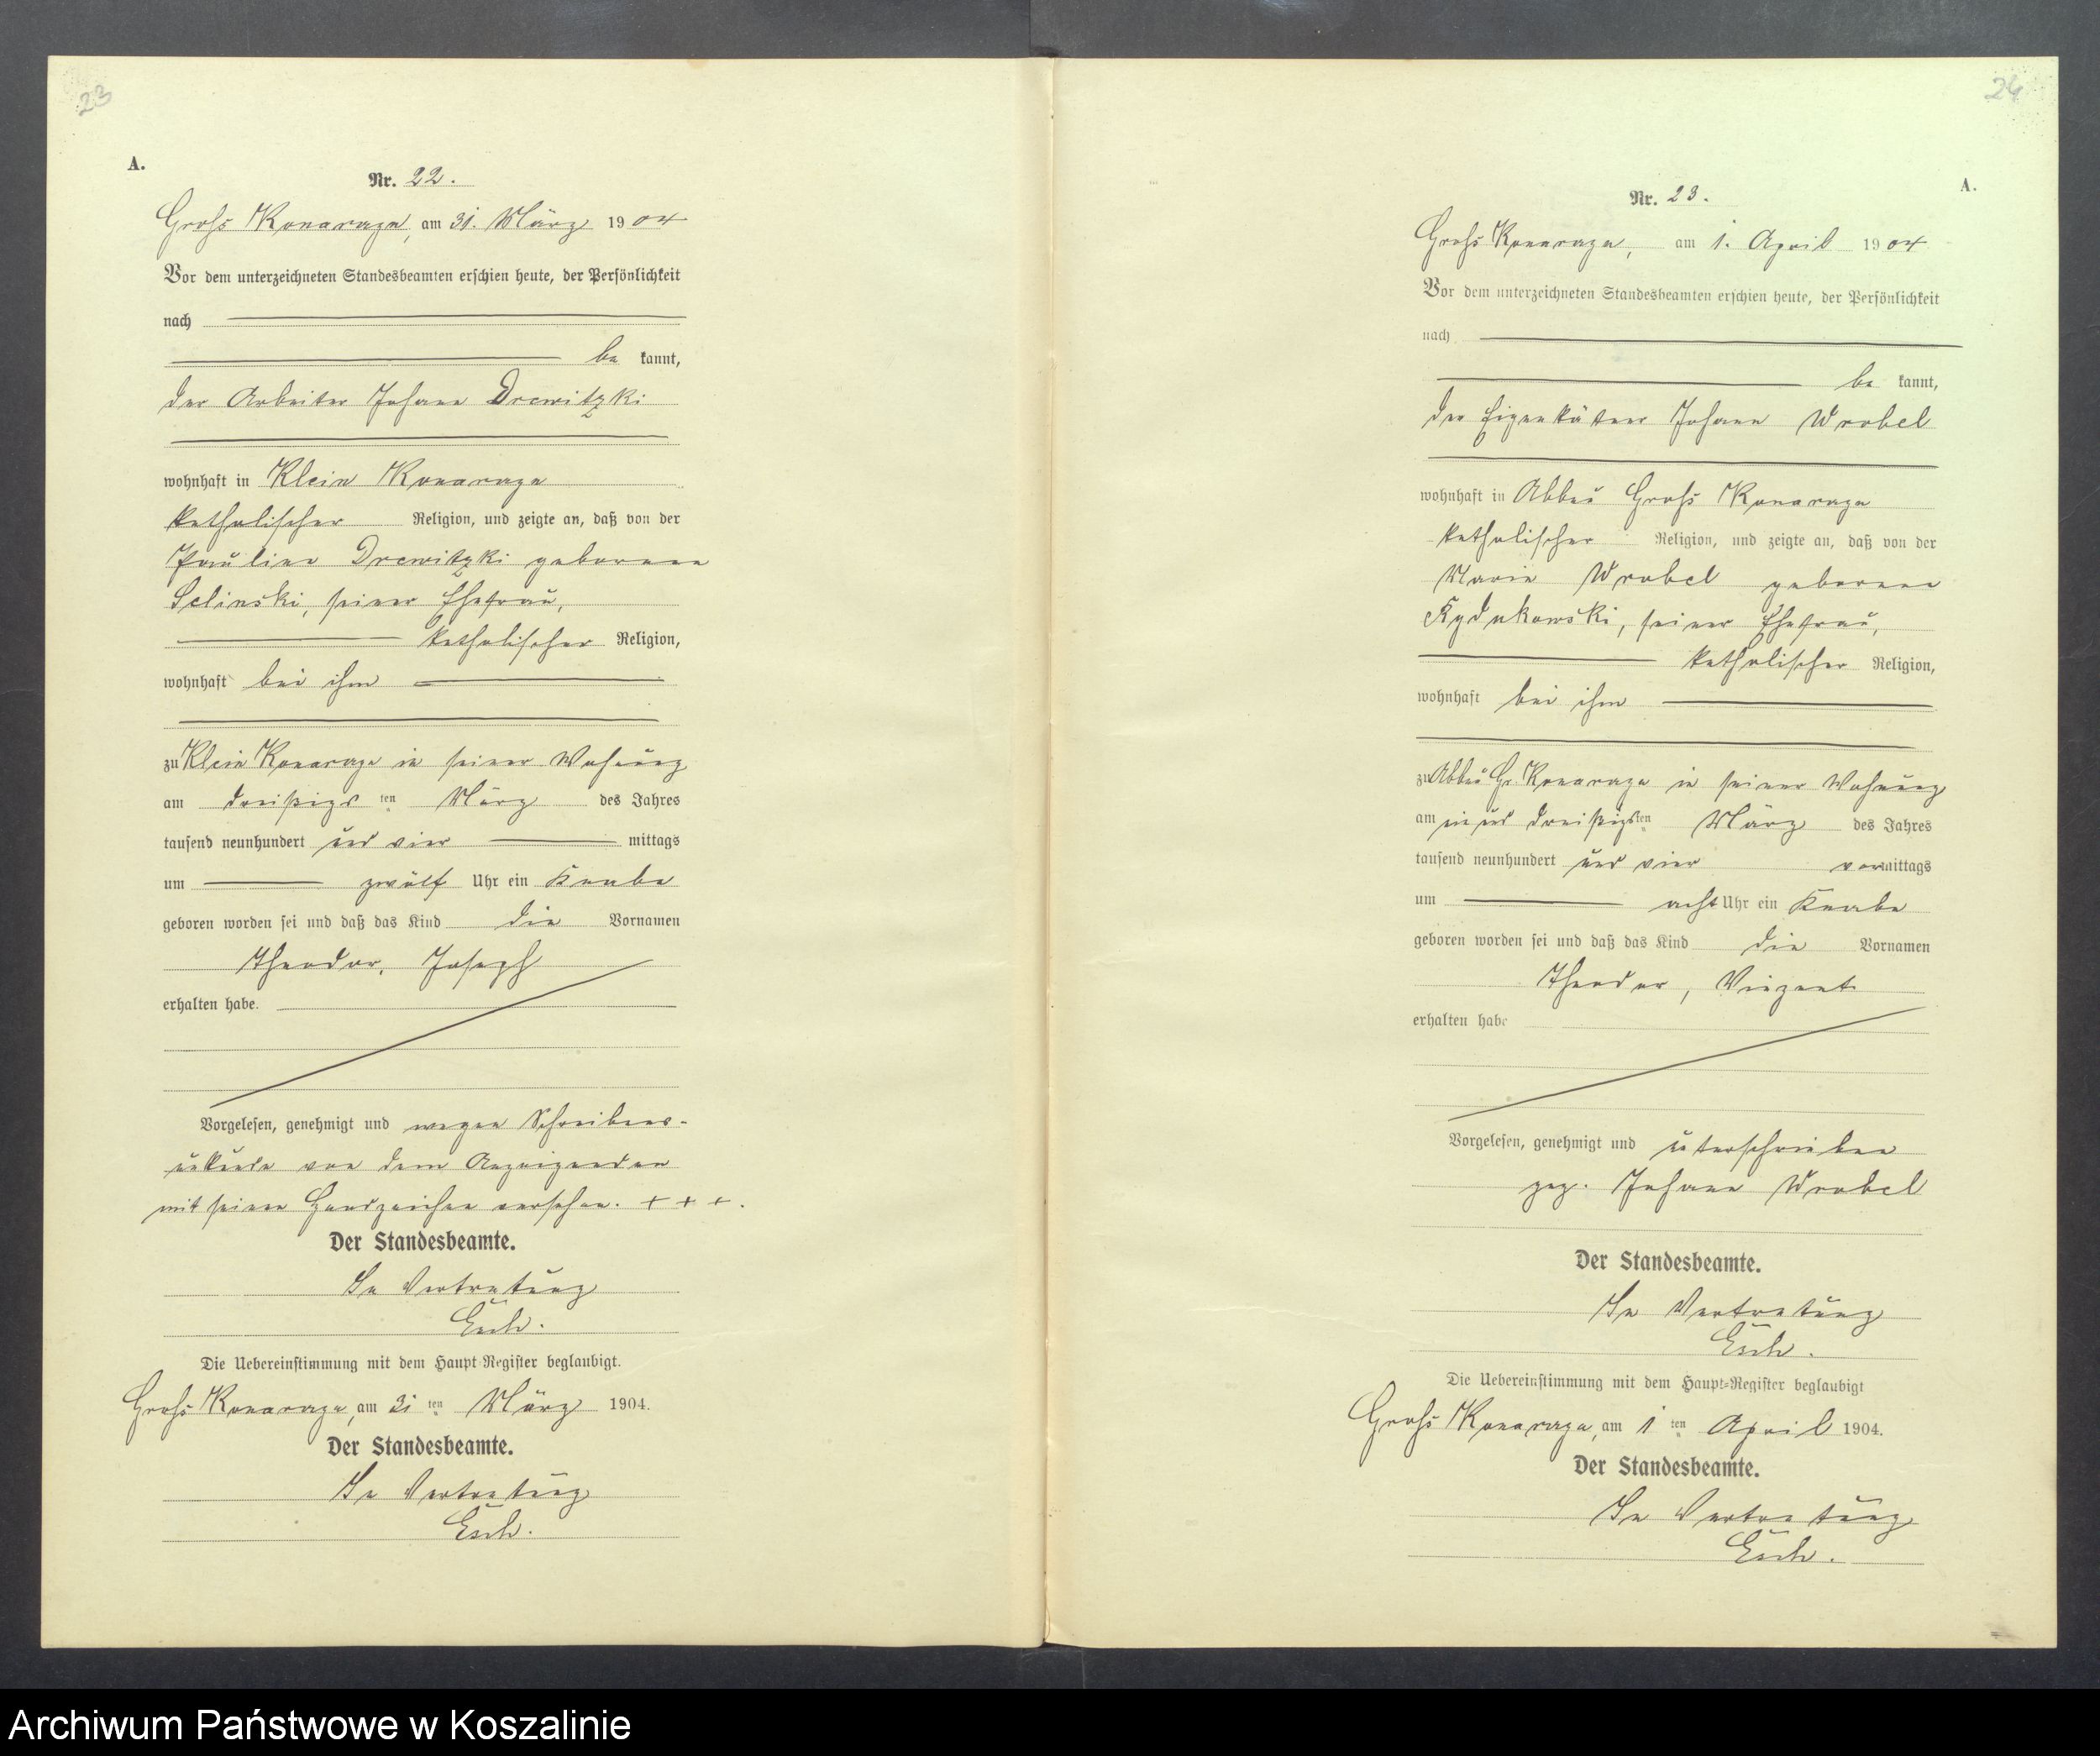 23
A.
Nr. 22.
Groß Konarczyn, am 31. März 1904
Vor dem unterzeichneten Standesbeamten erschien heute, der Persönlichkeit
nach
be kannt,
der Arbeiter Johann Drewitzki
wohnhaft in Klein Konarczyn
katholischer Religion, und zeigte an, daß von der
Pauline Drewitzki geborene
Selinski, seiner Ehefrau,
katholischer Religion,
wohnhaft bei ihm
zu Klein Konarczyn in seiner Wohnung
am dreißigsten März des Jahres
tausend neunhundert und vier mittags
um zwölf Uhr ein Knabe
geboren worden sei und daß das Kind die Vornamen
Theodor, Joseph
erhalten habe.
Vorgelesen, genehmigt und wegen Schreibens-
unkunde von dem Anzeigenden
mit seinen Handzeichen versehen. + + +.
Der Standesbeamte.
In Vertretung
Der Uebereinstimmung mit dem Haupt-Register beglaubigt.
Groß Konarczyn, am 31ten März 1904.
Der Standesbeamte.
In Vertretung
24
A.
Nr. 23.
Groß Konarczyn, am 1. April 1904
Vor dem unterzeichneten Standesbeamten erschien heute, der Persönlichkeit
nach
be kannt,
der Eigenkätner Johann Wrobel
wohnhaft in Abbau Groß Konarczyn
katholischer Religion, und zeigte an, daß von der
Marie Wrobel geborene
seiner Ehefrau,
katholischer Religion,
wohnhaft bei ihm
zu Abbau Gr. Konarczyn in seiner Wohnung
am ein und dreißigsten März des Jahres
tausend neunhundert und vier vormittags
um acht Uhr ein Knabe
geboren worden sei und daß das Kind die Vornamen
Theodor, Vinzent
erhalten habe
Vorgelesen, genehmigt und unterschrieben
gez. Johann Wrobel
Der Standesbeamte.
In Vertretung
Die Uebereinstimmung mit dem Haupt-Register beglaubigt
Groß Konarczyn, am 1ten April 1904.
Der Standesbeamte.
In Vertretung
Archiwum Państwowe w Koszalinie